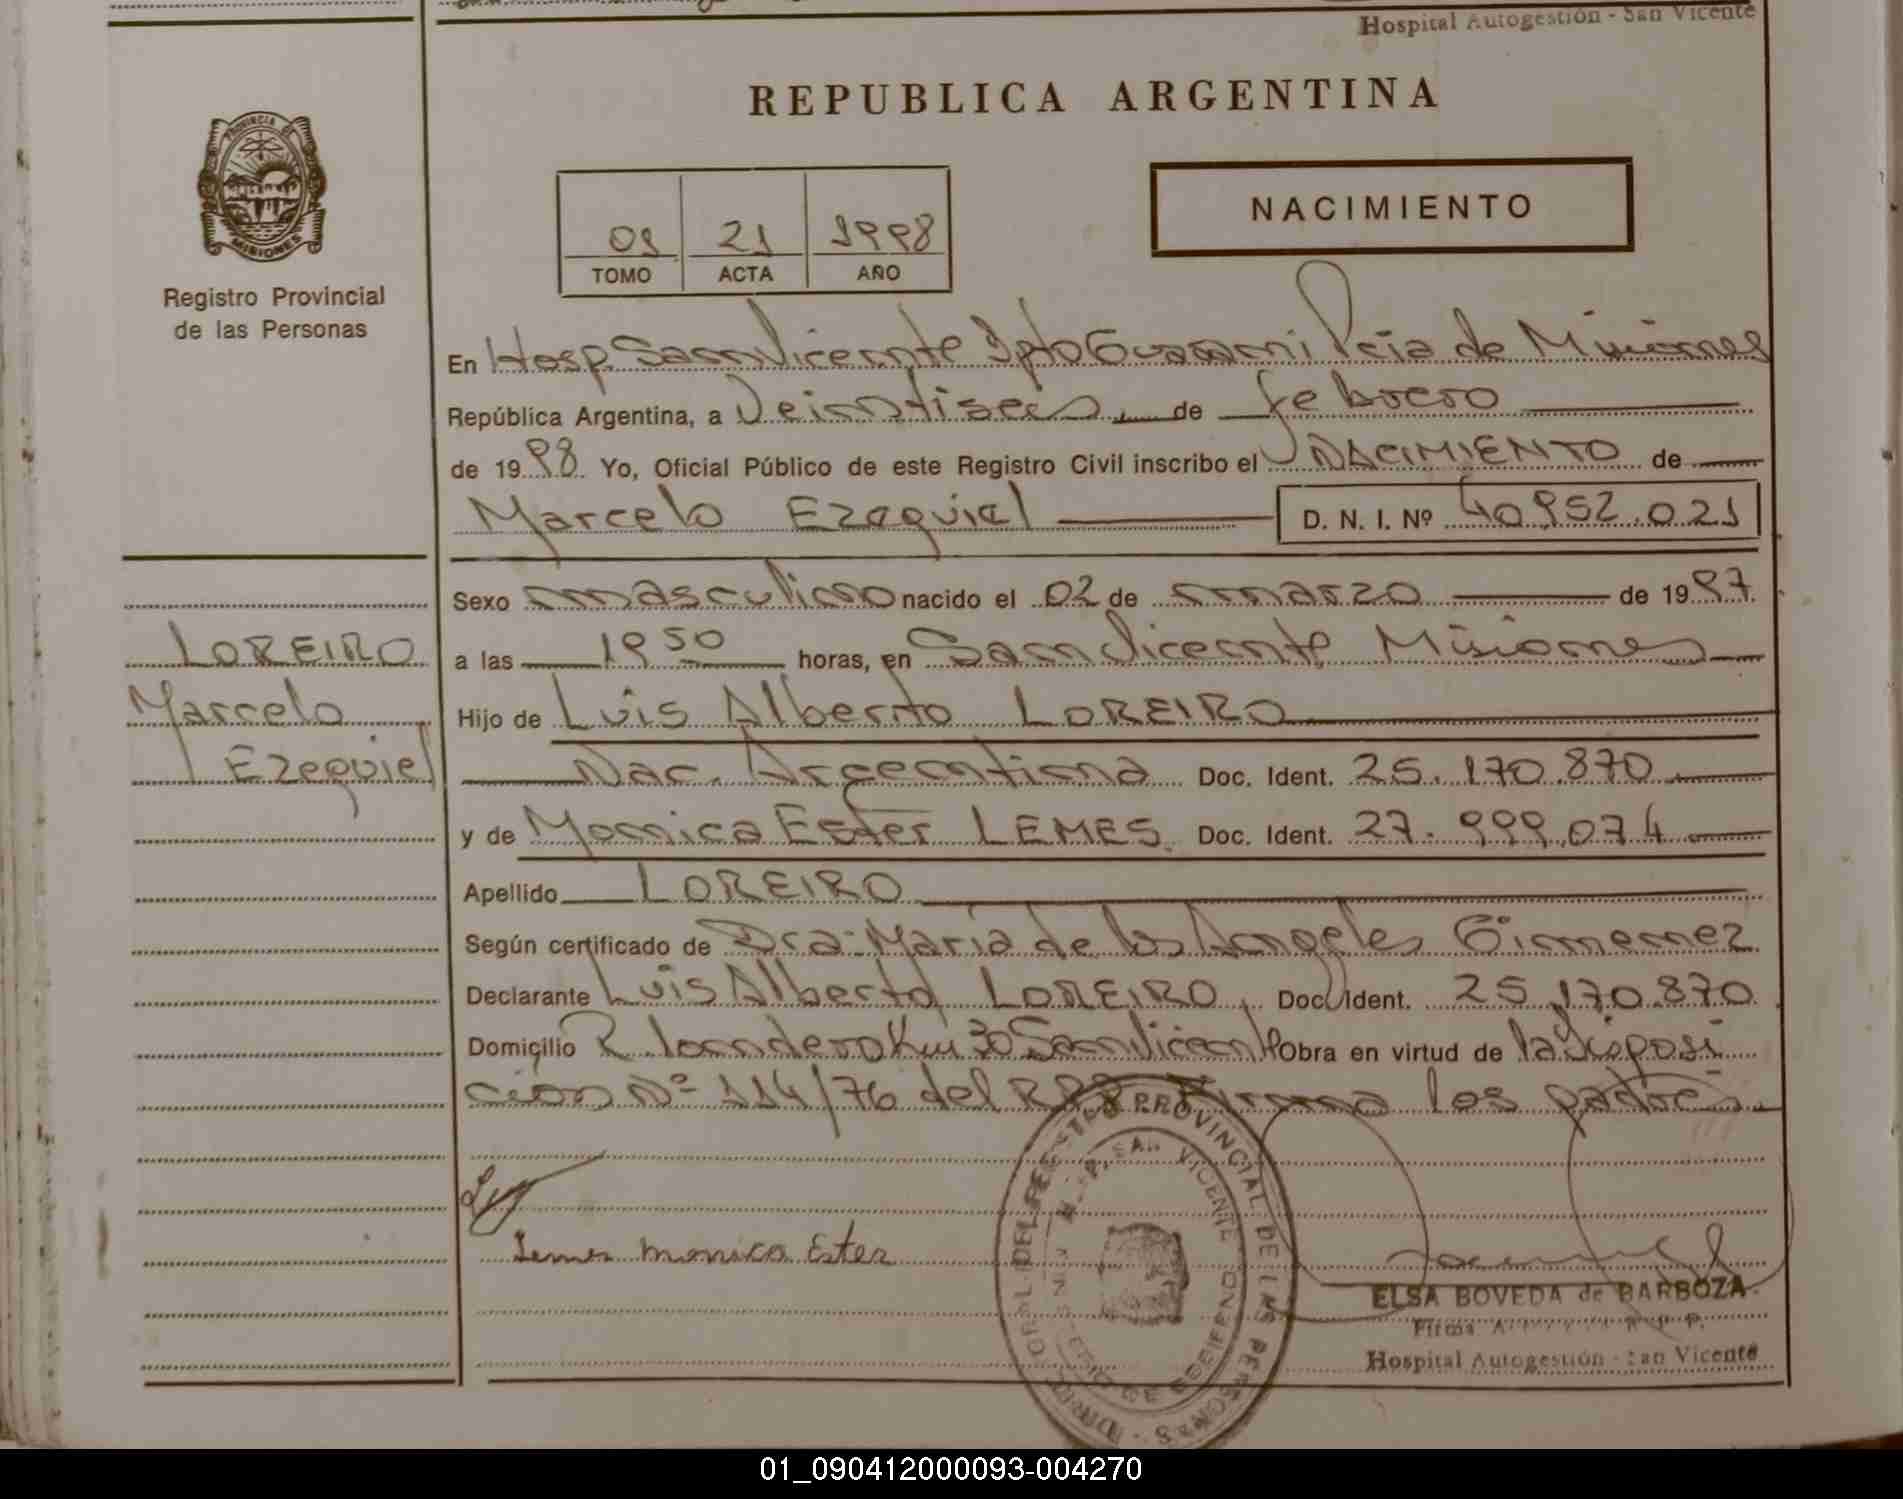 Hospital Autogestión - San Vicente
REPUBLICA ARGENTINA
PROVINCIA DE
MISIONES
Registro Provincial
de las Personas
01 21 1998
TOMO ACTA AÑO
NACIMIENTO
En Hosp. San Vicente Dpto Guarani Pcia de Misiones
República Argentina, a Veintiseis de febrero
de 1998 Yo, Oficial Público de este Registro Civil inscribo el NACIMIENTO de
Marcelo Ezequiel D. N. I. Nº 40.952.021
Sexo masculino nacido el 02 de marzo de 1997
LOREIRO
a las 19 50 horas, en San Vicente Misiones
Marcelo
Hijo de Luis Alberto LOREIRO
Ezequiel
Nac. Argentina Doc. Ident. 25.170.870
y de Monica Ester LEMES. Doc. Ident. 27.999.074
Apellido LOREIRO
Según certificado de Dra. Maria de los Angeles Gimenez
Declarante Luis Alberto LOREIRO Doc. Ident. 25.170.870
Domicilio R. Km 30 San Vicente Obra en virtud de la Disposi
cion Nº 114/76 del Firma los padres
Lemes Monica Ester
DEL REGISTRO PROVINCIAL DE LAS PERSONAS
SAN VICENTE
ELSA BOVEDA de BARBOZA
Firma
Hospital Autogestión - San Vicente
01_090412000093-004270